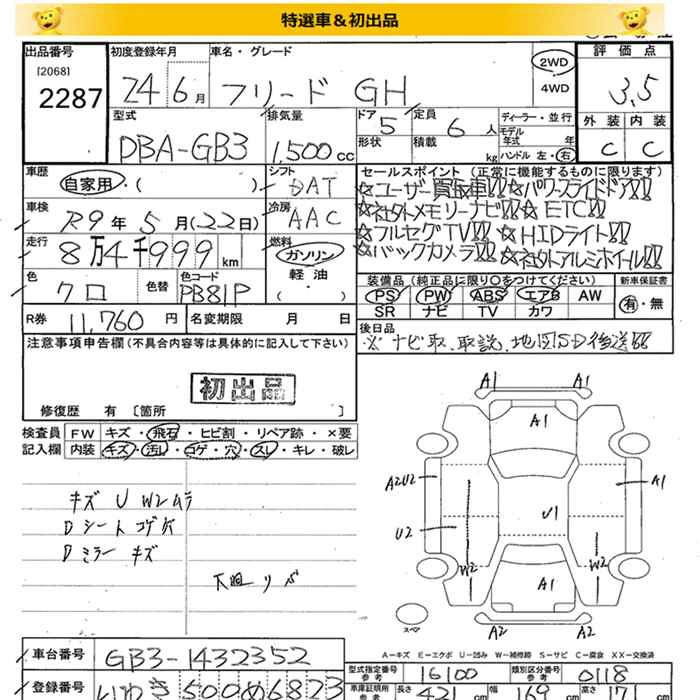 特選車&初出品
出品番号 初度登録年月 車名・グレード 評価点
[2068]
2287 24 6月 フリード GH 2WD 4WD 3.5
型式 排気量 ドア 定員 ディーラー・並行 外装 内装
DBA-GB3 1,500cc 5 6人 モデル年式 年 C C
形状 積載 kg ハンドル 左・右
車歴 シフト セールスポイント(正常に機能するものに限ります)
自家用・( ) DAT ☆ユーザー買取車!!☆パワースライドドア!!
車検 冷房 ☆社外メモリーナビ!!☆ETC!!
R9年5月(22日) AAC ☆フルセグTV!!☆HIDライト!!
走行 燃料 ☆バックカメラ!!☆社外アルミホイール!!
8万4千999km ガソリン
軽油
( )
色 色替 色コード 装備品(純正品に限り〇をつけてください) 新車保証書
クロ PB81P PS PW ABS エアB AW 有・無
SR ナビ TV カワ
R券 11,760円 名変期限 月 日 後日品
※ナビ取、取説、地図SD後送
注意事項申告欄(不具合内容等は具体的に記入して下さい)
初出品
修復歴 有〔箇所 〕
検査員記入欄 FW キズ・飛石・ヒビ割・リペア跡・×要
内装 キズ・汚レ・コゲ・穴・スレ・キレ・破レ
キズ U W2ムラ
Dシート コゲ穴
Dミラー キズ
下廻リ サビ
A1 A1
A1
A2U2 A1
U1
U2
W2 W2
A1
A2 A2
スペア
A-キズ E-エクボ U-凹み W-補修跡 S-サビ C-腐食 XX-交換済
車台番号 GB3-1432352
型式指定番号 参考 16100 類別区分番号 参考 0118
登録番号 いわき500め6823
車庫証明所 参考 長さ 421 cm 幅 169 cm 高さ